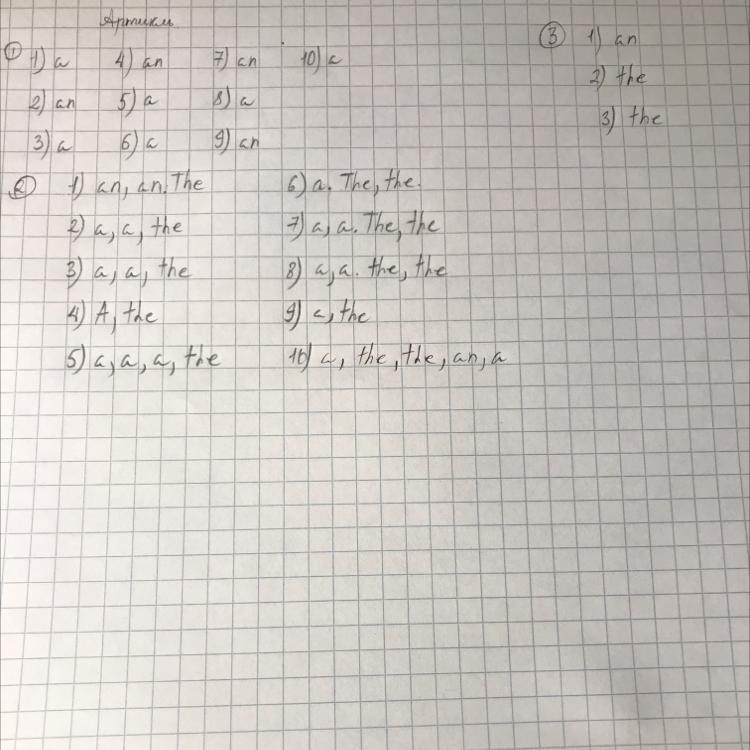 Артикли
① 1) a 4) an 7) an 10) a
2) an 5) a 8) a
3) a 6) a 9) an
② 1) an, an. The 6) a. The, the.
2) a, a, the 7) a, a. The, the
3) a, a, the 8) a, a. the, the
4) A, the 9) a, the
5) a, a, a, the 10) a, the, the, an, a
③ 1) an
2) the
3) the